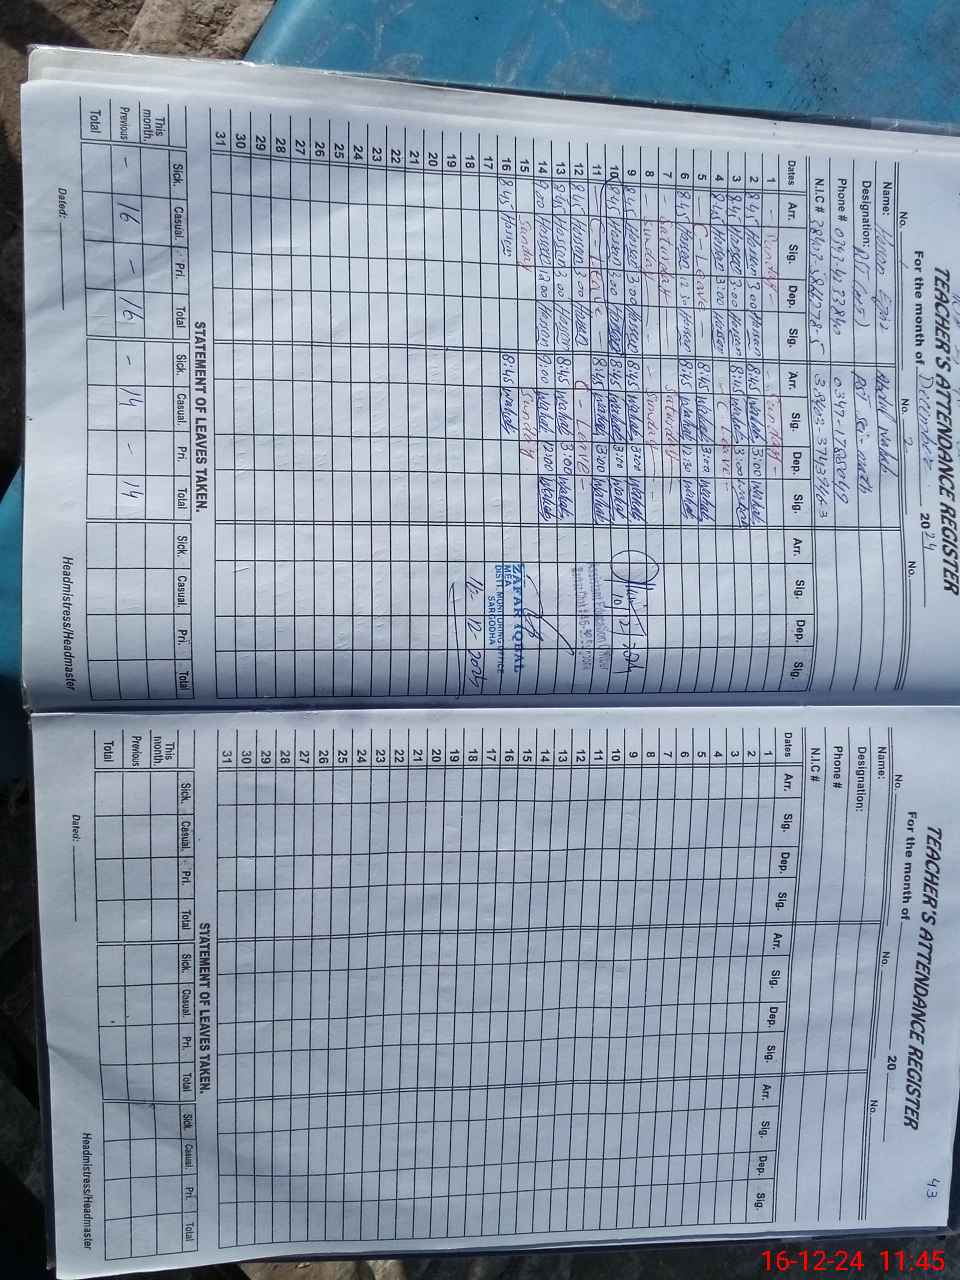 TEACHER'S ATTENDANCE REGISTER
For the month of December 2024
No. 1 No. 2 No.
Name: Abdul Wahab
Designation:
Phone #
N.I.C #
Dates Arr. Sig. Dep. Sig. Arr. Sig. Dep. Sig. Arr. Sig. Dep. Sig.
1 - Sunday - - Sunday -
2 8:45 Hassan 3:00 Hassan 8:45 Wahab 3:00 Wahab
3 8:45 Hassan 3:00 Hassan 8:45 Wahab 3:00 Wahab
4 8:45 Hassan 3:00 Hassan - C Leave -
5 C - Leave - 8:45 Wahab 3:00 Wahab
6 8:45 Hassan 12:30 Hassan 8:45 Wahab 12:30 Wahab
7 - Saturday - Saturday -
8 - Sunday - - Sunday -
9 8:45 Hassan 3:00 Hassan 8:45 Wahab 3:00 Wahab
10 8:45 Hassan 3:00 Hassan 8:45 Wahab 3:00 Wahab
11 C - Leave - 8:45 Wahab 3:00 Wahab
12 8:45 Hassan 3:00 Hassan C - Leave -
13 8:45 Hassan 3:00 Hassan 8:45 Wahab 3:00 Wahab
14 9:00 Hassan 12:00 Hassan 9:00 Wahab 12:00 Wahab
15 Sunday Sunday
16 8:45 Hassan 8:45 Wahab
17
18
19
20
21
22
23
24
25
26
27
28
29
30
31
10/12/2024
ZAFAR IQBAL
MEA
DISTT. MONITORING OFFICE
SARGODHA
STATEMENT OF LEAVES TAKEN.
Sick. Casual. Pri. Total Sick. Casual. Pri. Total Sick. Casual. Pri. Total
This month.
Previous - 16 - 16 - 14 - 14
Total
Dated: Headmistress/Headmaster
43
TEACHER'S ATTENDANCE REGISTER
For the month of 20
No. No. No.
Name:
Designation:
Phone #
N.I.C #
Dates Arr. Sig. Dep. Sig. Arr. Sig. Dep. Sig. Arr. Sig. Dep. Sig.
1
2
3
4
5
6
7
8
9
10
11
12
13
14
15
16
17
18
19
20
21
22
23
24
25
26
27
28
29
30
31
STATEMENT OF LEAVES TAKEN.
Sick. Casual. Pri. Total Sick. Casual. Pri. Total Sick. Casual. Pri. Total
This month.
Previous
Total
Dated: Headmistress/Headmaster
16-12-24 11.45